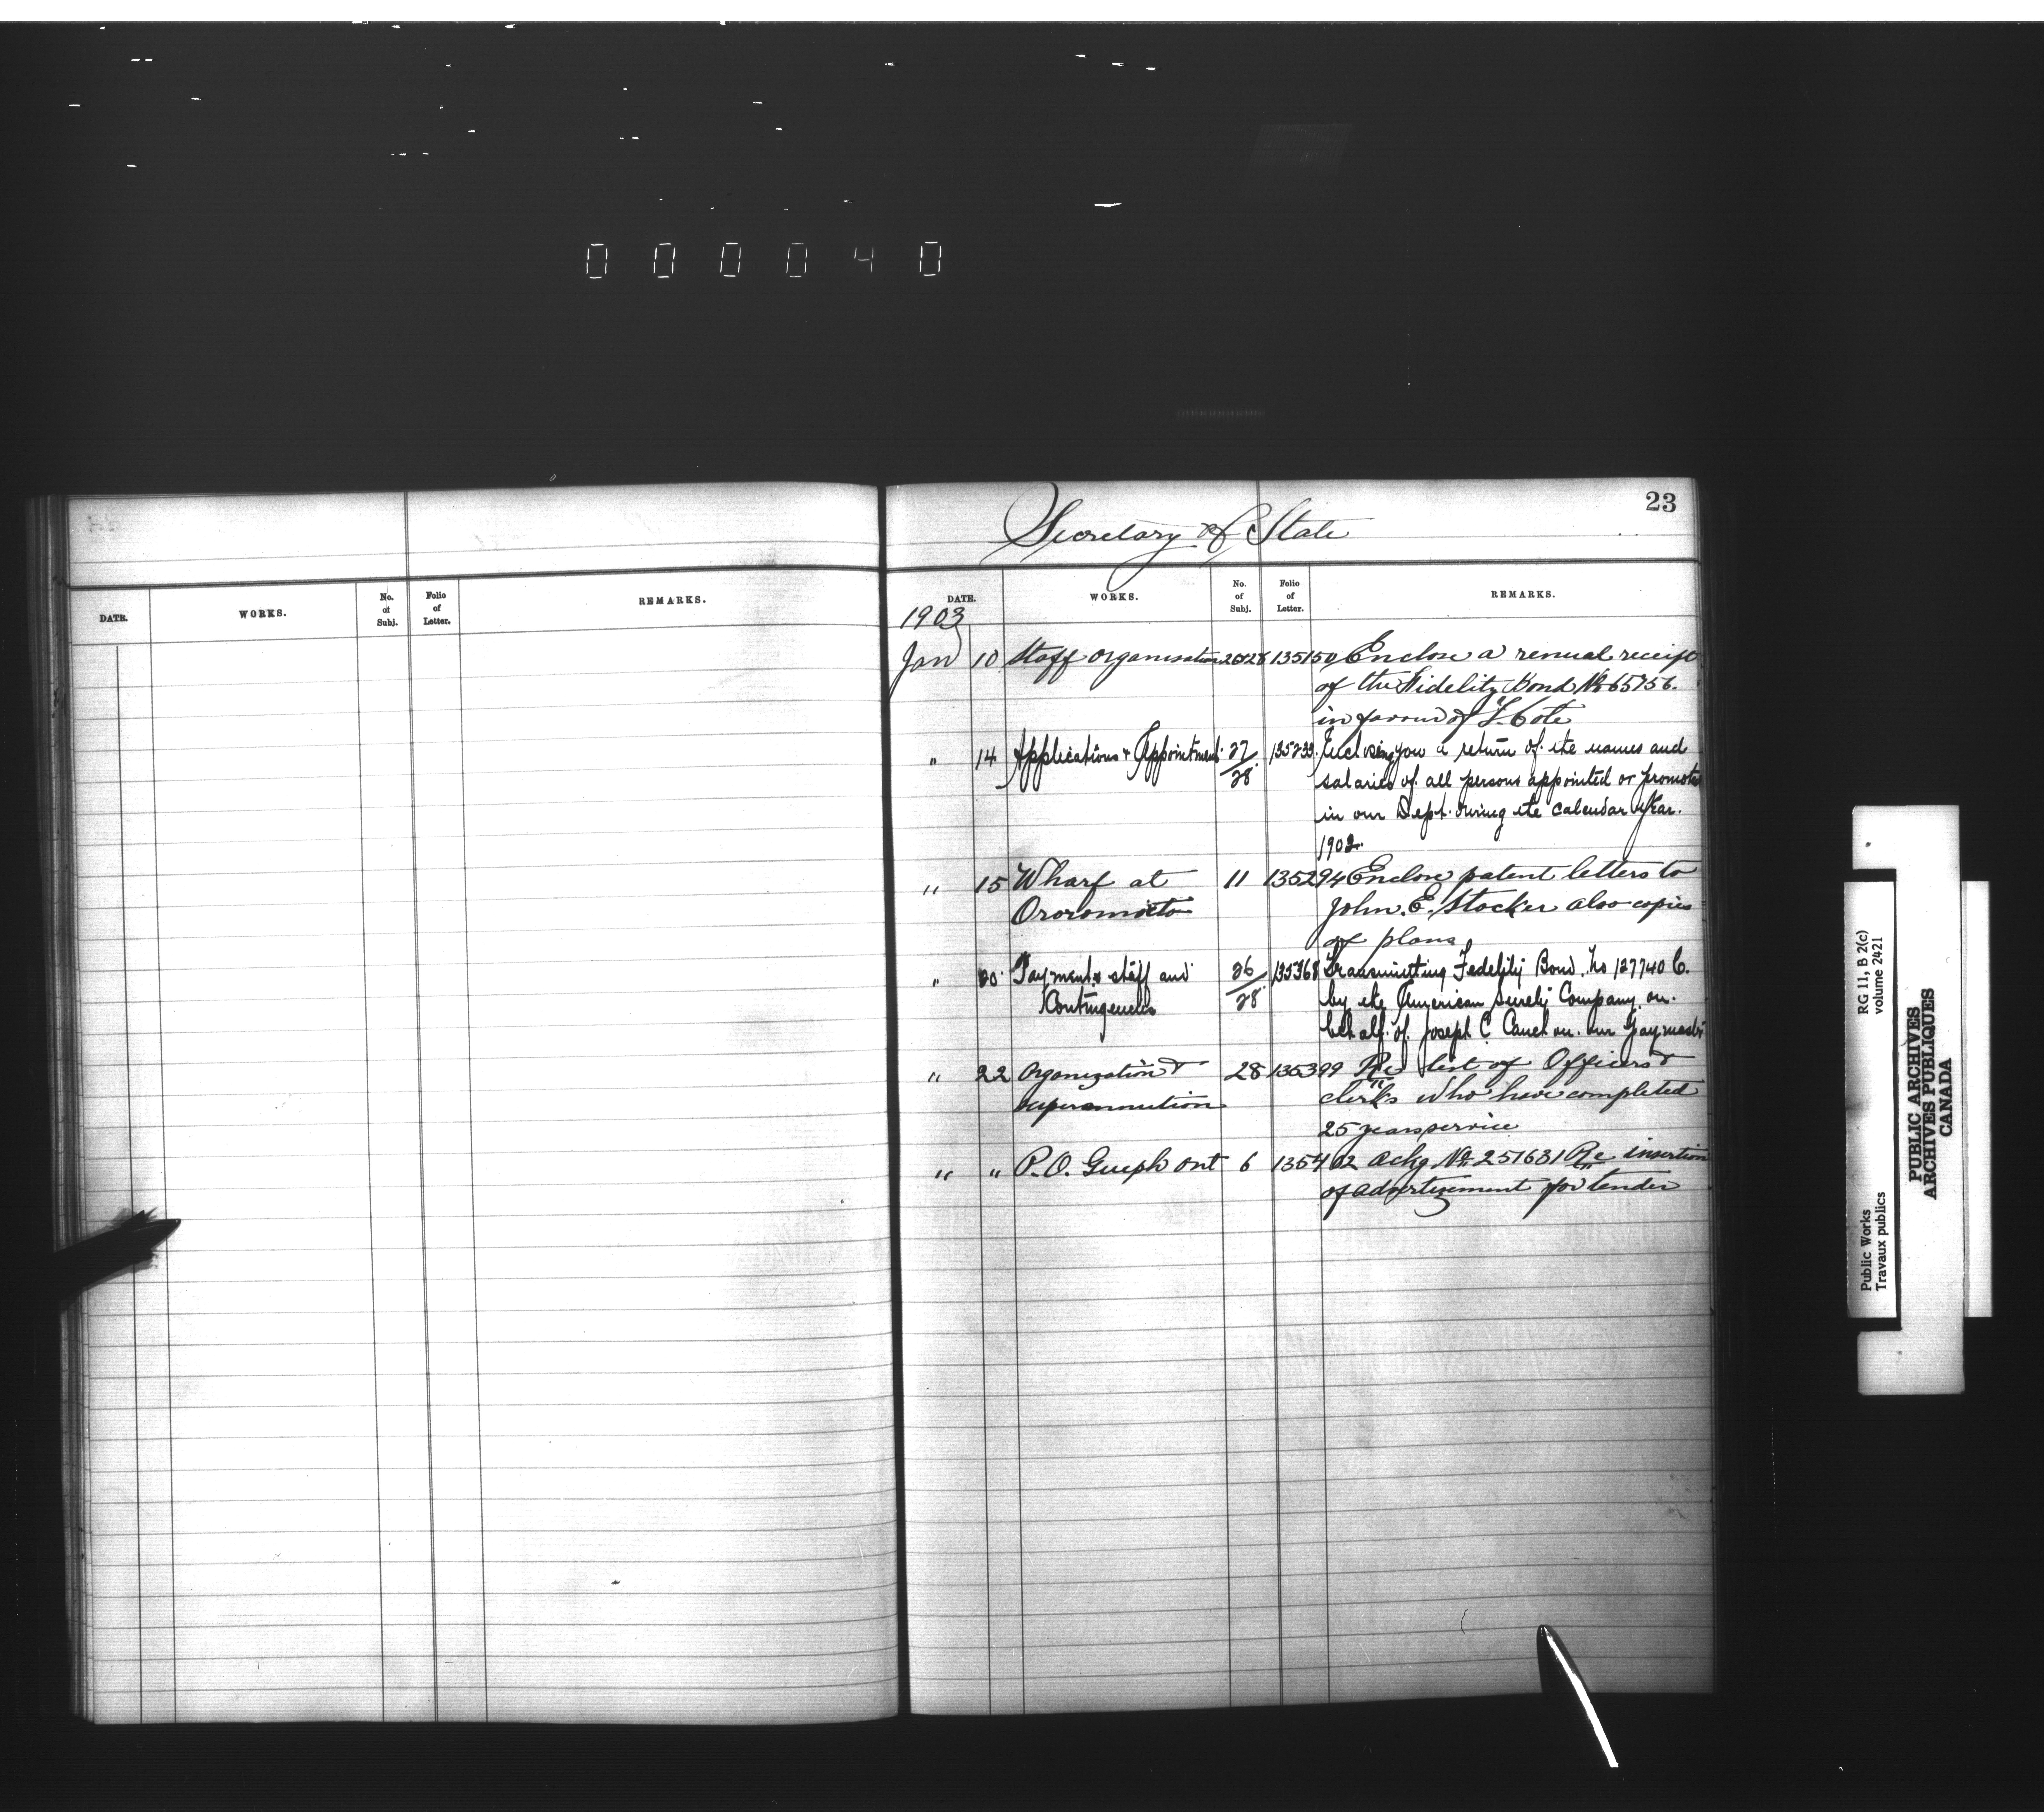 000040
23
Secretary of State
DATE. WORKS. No. of Subj. Folio of Letter. REMARKS.
DATE. WORKS. No. of Subj. Folio of Letter. REMARKS.
1903
Jan 10 Staff organisation 26&28 135150 Enclose a renual receipt
of the Fidelity Bond No 65756.
in favour of L. Cote
" 14 Applications & Appointment 27/28 135233. Enclosing you a return of the names and
salaries of all persons appointed or promoted
in our Dept. during the calendar year.
1902.
" 15 Wharf at 11 135294 Enclose patent letters to
Ororomocto John. E. Stocker also copies
of plans
" 20 Payments staff and 26/28 135368 Transmitting Fedelity Bond. No 127740 C.
Contingencies by the American Surety Company on.
behalf. of. Joseph C. Cauchon. our Paymaster
" 22 Organization & 28 135399 Re list of Officers &
superannution clerks who have completed
25 years service
" " P.O. Guelph Ont 6 135402 Ackg No 257631 Re insertion
of advertizement for tender
Public Works
Travaux publics
RG 11, B 2(c)
volume 2421
PUBLIC ARCHIVES
ARCHIVES PUBLIQUES
CANADA